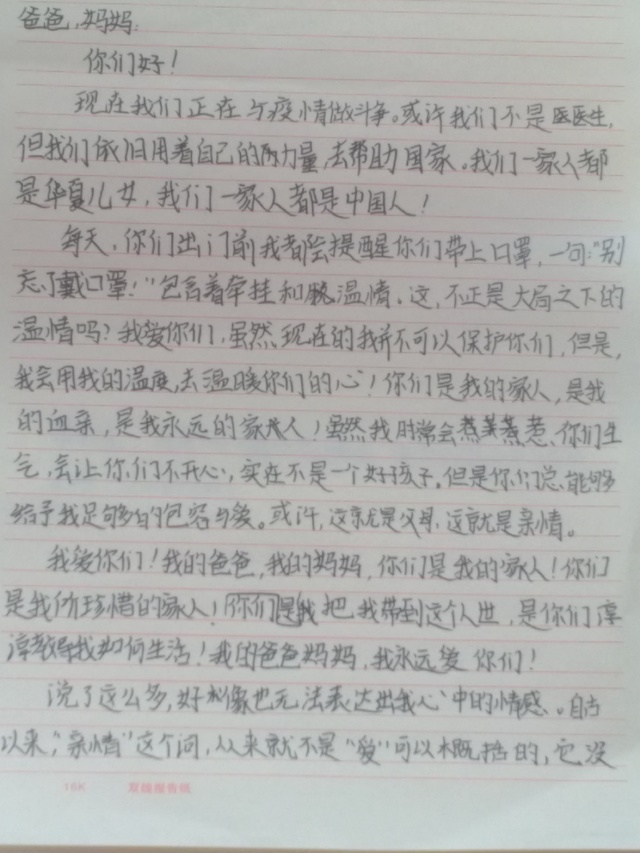 爸爸,妈妈:
你们好!
现在我们正在与疫情做斗争。或许我们不是医生,
但我们依旧用着自己的力量,去帮助国家。我们一家人都
是华夏儿女,我们一家人都是中国人!
每天,你们出门前我都会提醒你们带上口罩,一句:"别
忘了戴口罩!"包含着牵挂和温情。这,不正是大局之下的
温情吗?我爱你们,虽然现在的我并不可以保护你们,但是,
我会用我的温度,去温暖你们的心!你们是我的家人,是我
的血亲,是我永远的家人!虽然我时常会惹你们生
气,会让你们不开心,实在不是一个好孩子。但是你们总能够
给予我足够的包容与爱。或许,这就是父母,这就是亲情。
我爱你们!我的爸爸,我的妈妈,你们是我的家人!你们
是我所珍惜的家人!你们把我带到这个人世,是你们谆
谆教导我如何生活!我的爸爸妈妈,我永远爱你们!
说了这么多,好像也无法表达出我心中的情感。自古
以来,"亲情"这个词,从来就不是"爱"可以概括的,它没
16K 双线报告纸